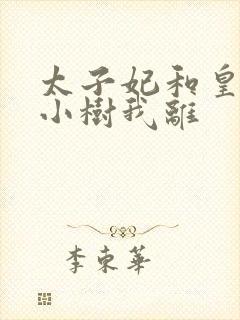 太子妃和皇
小樹我離
李東華